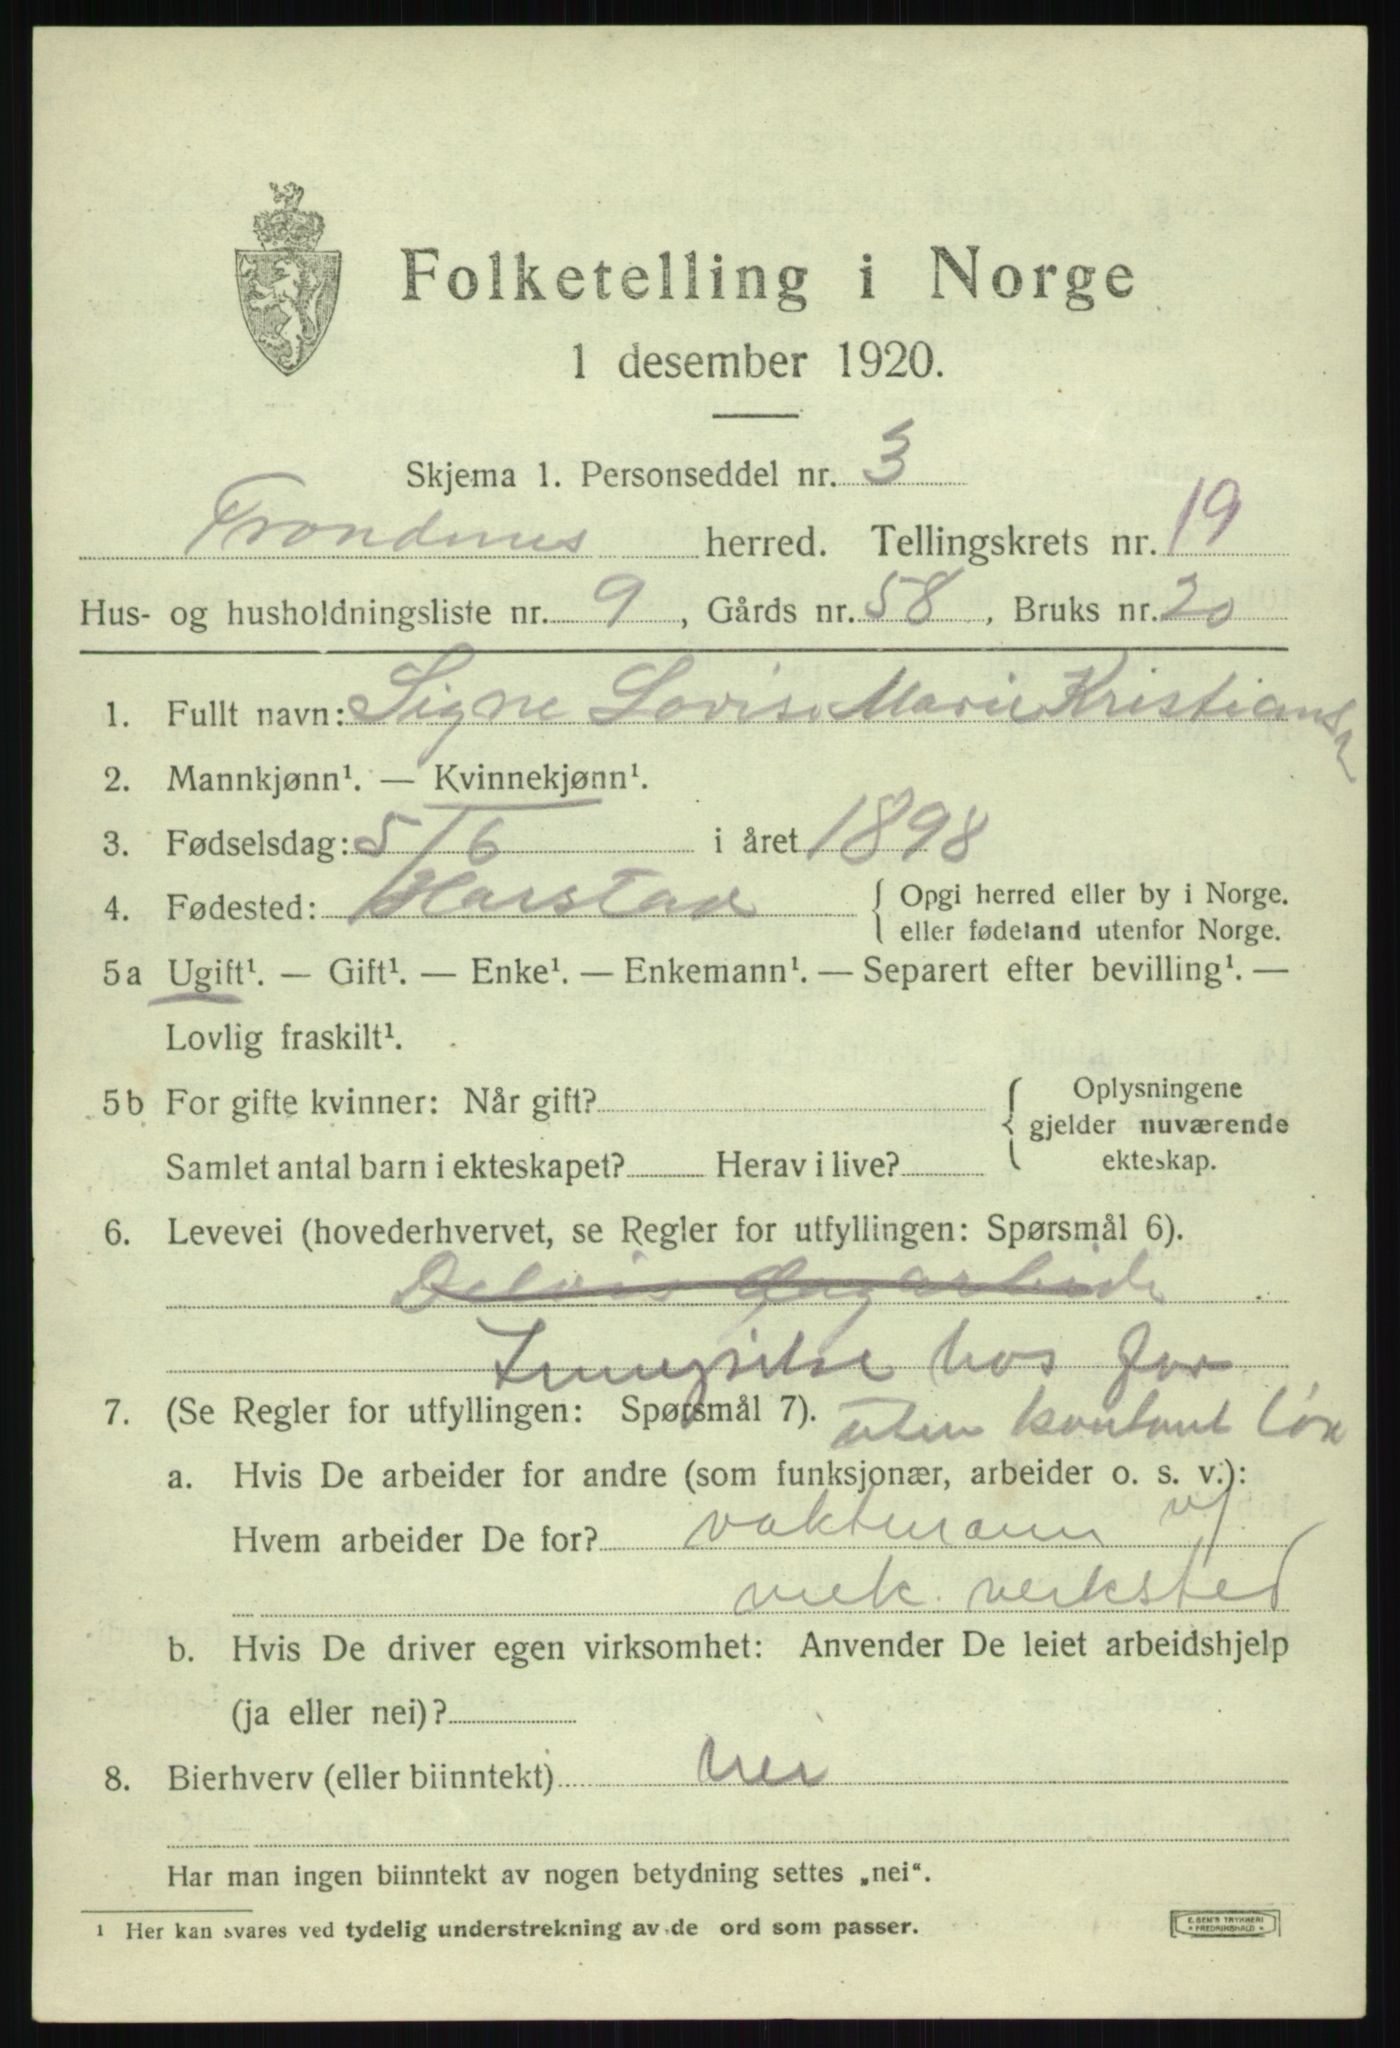 Folketelling i Norge
1 desember 1920.
Skjema 1. Personseddel nr. 3
Trondenes herred. Tellingskrets nr. 19
Hus- og husholdningsliste nr. 9, Gårds nr. 58, Bruks nr. 20
1. Fullt navn: Signe Lovise Marie Kristiansen
2. Mannkjønn¹. — Kvinnekjønn¹.
3. Fødselsdag: 5/6 i året 1898
4. Fødested: Harstad { Opgi herred eller by i Norge.
eller fødeland utenfor Norge.
5a Ugift¹. — Gift¹. — Enke¹. — Enkemann¹. — Separert efter bevilling¹. —
Lovlig fraskilt¹.
5b For gifte kvinner: Når gift? { Oplysningene
gjelder nuværende
ekteskap.
Samlet antal barn i ekteskapet? Herav i live?
6. Levevei (hovederhvervet, se Regler for utfyllingen: Spørsmål 6).
Delvis dagarbeide
hos far
7. (Se Regler for utfyllingen: Spørsmål 7). uten kontant løn
a. Hvis De arbeider for andre (som funksjonær, arbeider o. s. v.):
Hvem arbeider De for? vaktmann v/
mek. verksted
b. Hvis De driver egen virksomhet: Anvender De leiet arbeidshjelp
(ja eller nei)?
8. Bierhverv (eller biinntekt) nei
Har man ingen biinntekt av nogen betydning settes „nei“.
¹ Her kan svares ved tydelig understrekning av de ord som passer.
E. SEM'S TRYKKERI
* FREDRIKSHALD *